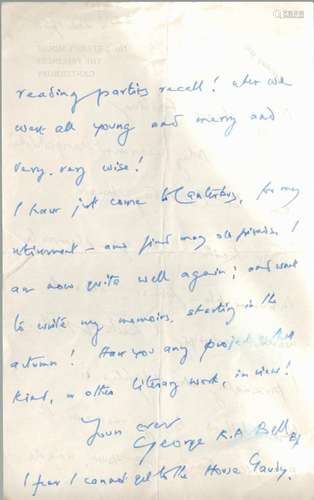 reading parties recall! when we
were all young and merry and
very, very wise!
I have just come to Canterbury, for my
retirement – and find many old friends!
am now quite well again; and want
to write my memoirs, starting in the
autumn! Have you any project of that
kind, or other literary work, in view?
Yours ever
George K.A. Bell
I fear I cannot get to the House Gaudy.